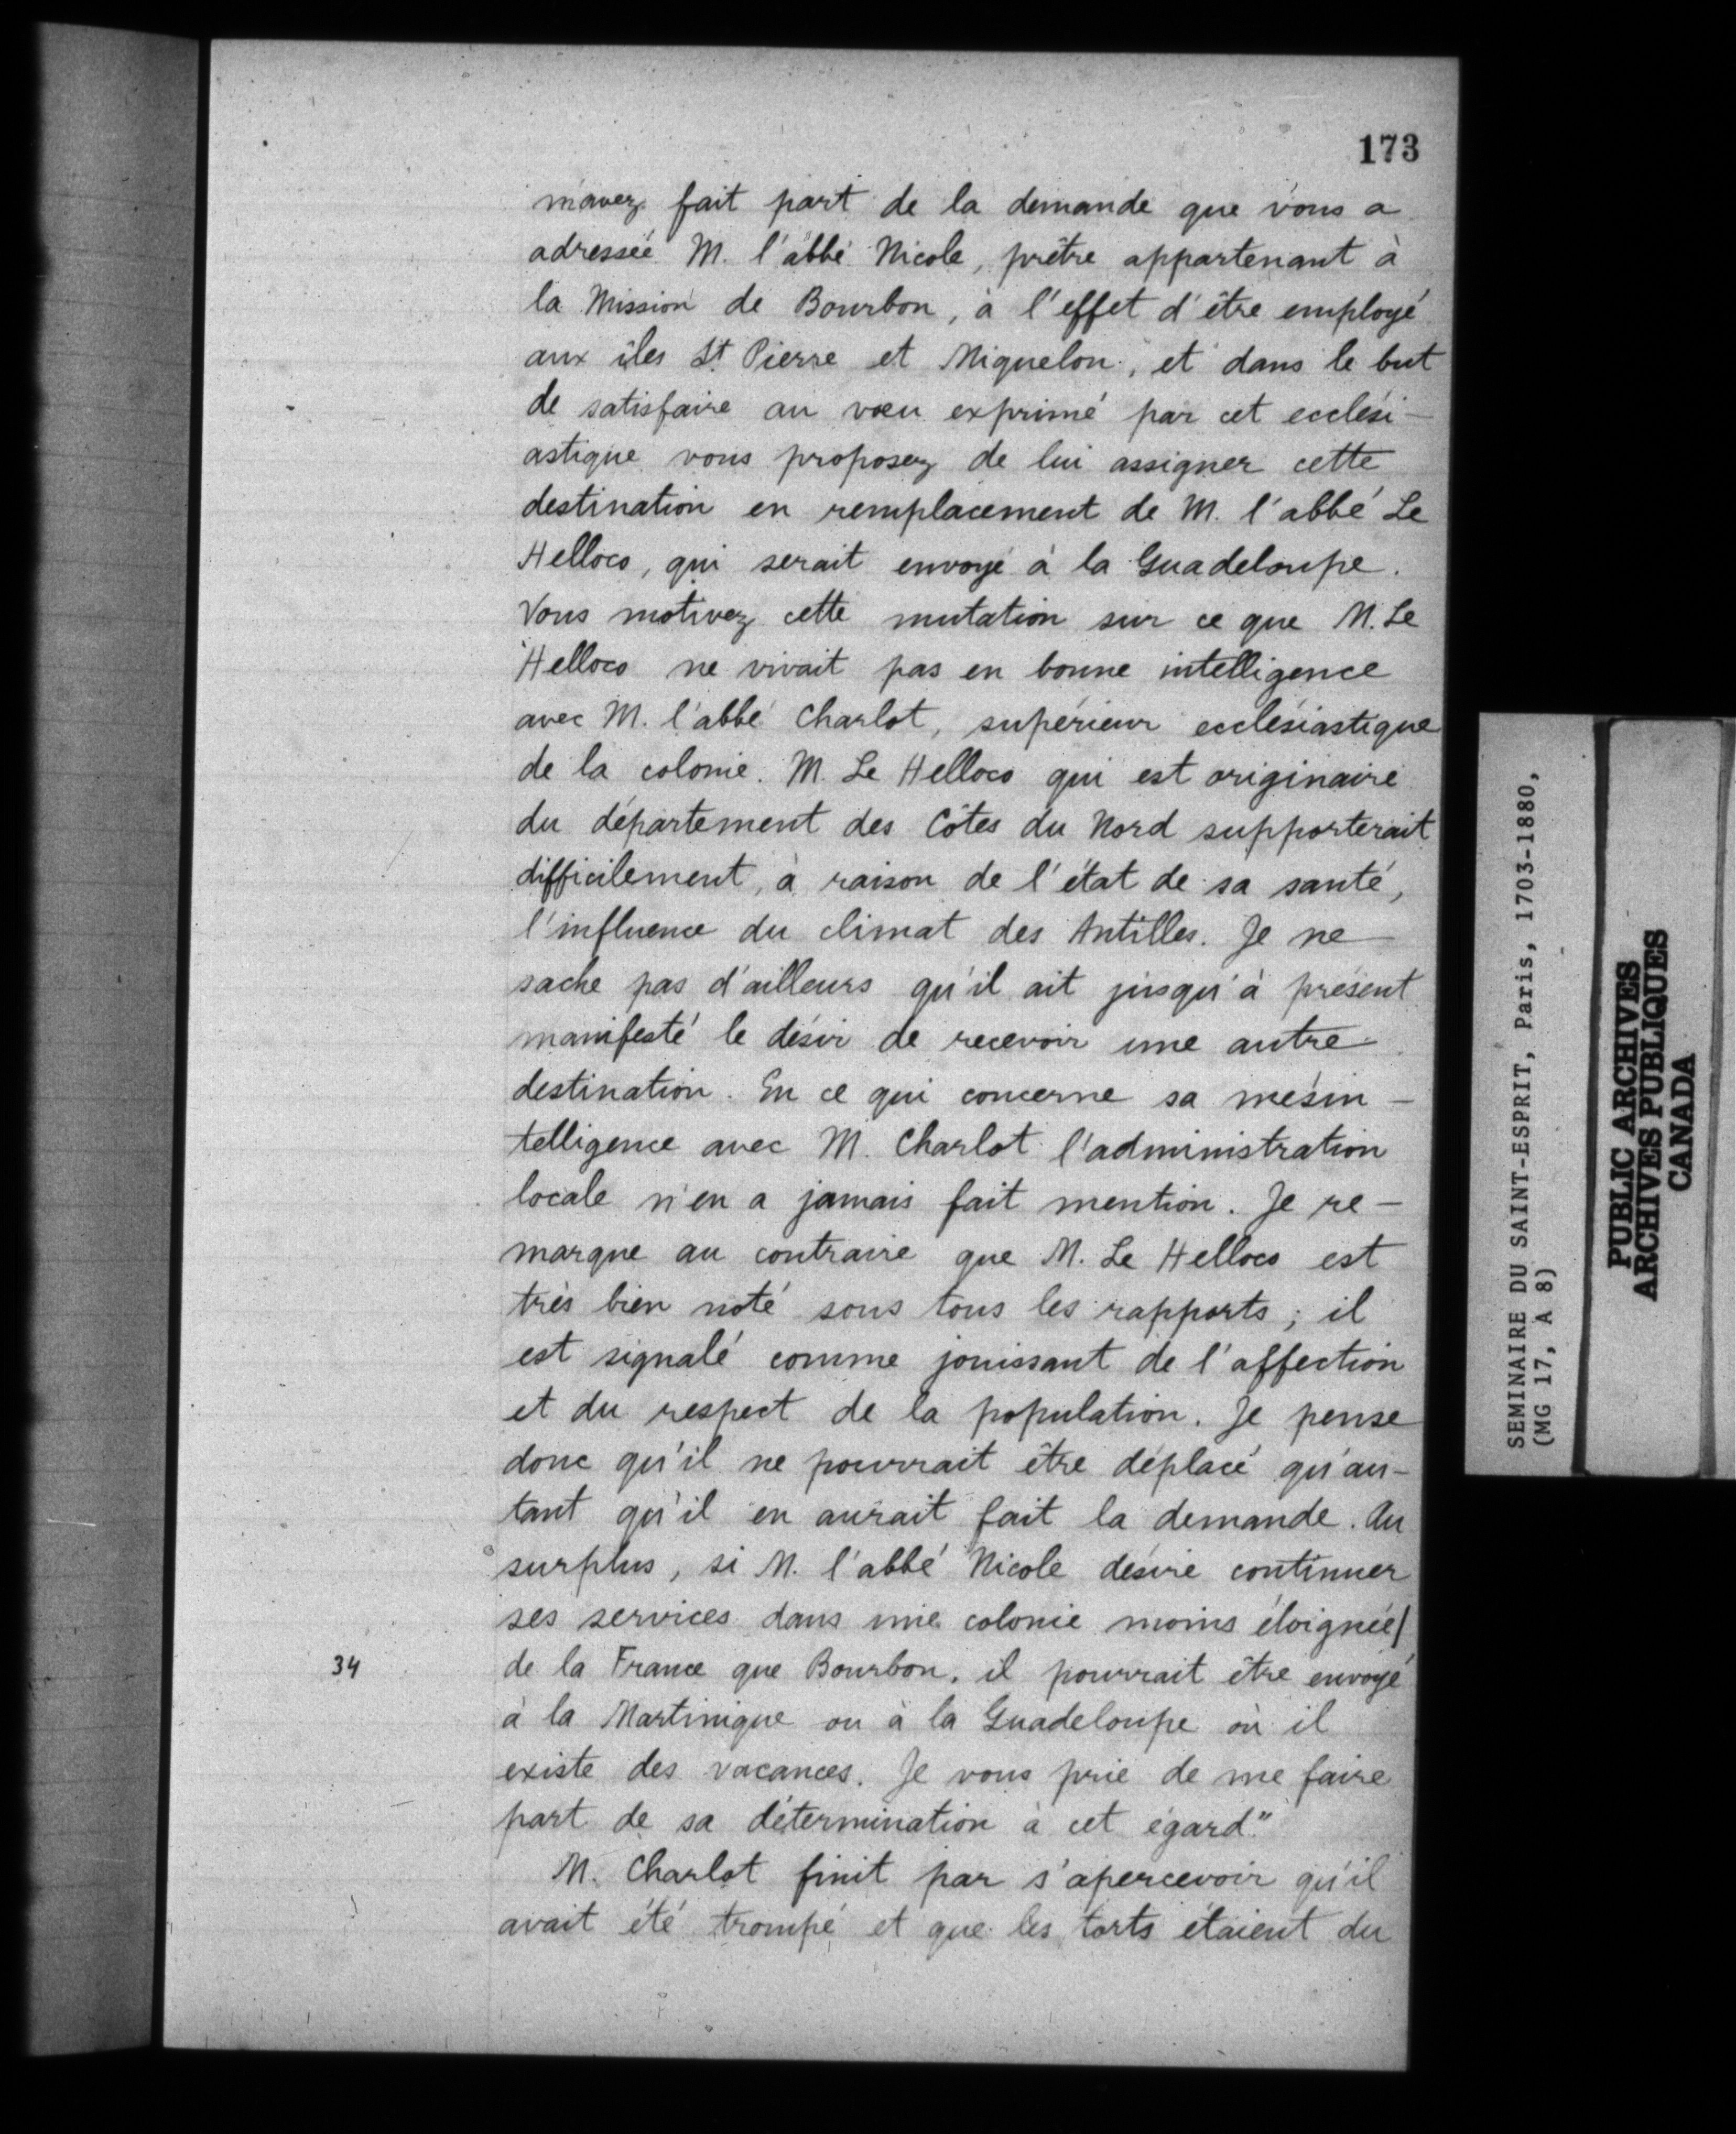 173
m'avez fait part de la demande que vous a
adressée M. l'abbé Nicole, prêtre appartenant à
la Mission de Bourbon, à l'effet d'être employé
aux îles St. Pierre et Miquelon, et dans le but
de satisfaire au vœu exprimé par cet ecclési-
astique vous proposez de lui assigner cette
destination en remplacement de M. l'abbé Le
Helloco, qui serait envoyé à la Guadeloupe.
Vous motivez cette mutation sur ce que M. Le
Helloco ne vivait pas en bonne intelligence
avec M. l'abbé Charlot, supérieur ecclésiastique
de la colonie. M. Le Helloco qui est originaire
du département des Côtes du Nord supporterait
difficilement, à raison de l'état de sa santé,
l'influence du climat des Antilles. Je ne
sache pas d'ailleurs qu'il ait jusqu'à présent
manifesté le désir de recevoir une autre
destination. En ce qui concerne sa mésin-
telligence avec M. Charlot l'administration
locale n'en a jamais fait mention. Je re-
marque au contraire que M. Le Helloco est
très bien noté sous tous les rapports; il
est signalé comme jouissant de l'affection
et du respect de la population. Je pense
donc qu'il ne pourrait être déplacé qu'au-
tant qu'il en aurait fait la demande. Au
surplus, si M. l'abbé Nicole désire continuer
ses services dans une colonie moins éloignée/
34 de la France que Bourbon, il pourrait être envoyé
à la Martinique ou à la Guadeloupe où il
existe des vacances. Je vous prie de me faire
part de sa détermination à cet égard."
M. Charlot finit par s'apercevoir qu'il
avait été trompé et que les torts étaient du
SEMINAIRE DU SAINT-ESPRIT, Paris, 1703-1880,
(MG 17, A 8)
PUBLIC ARCHIVES
ARCHIVES PUBLIQUES
CANADA